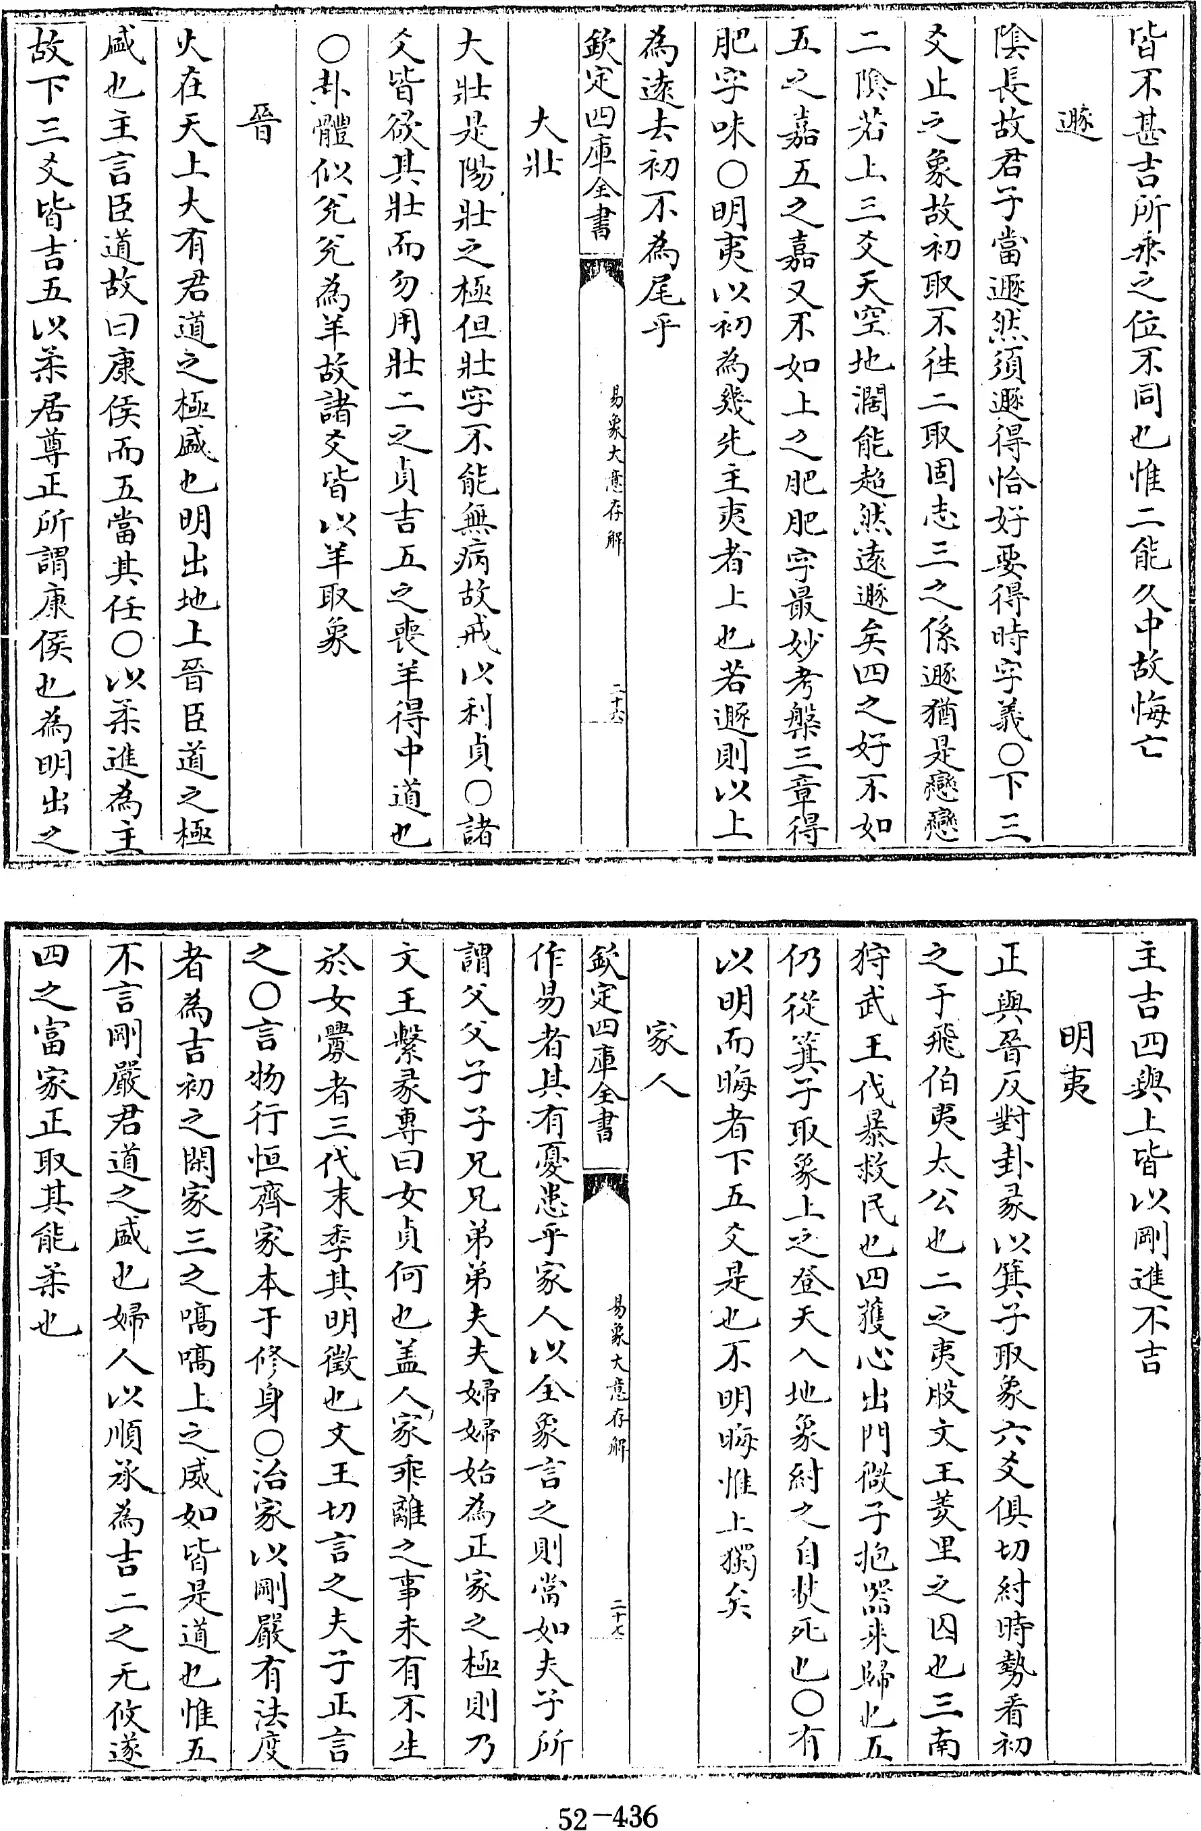 皆不甚吉所乘之位不同也惟二能久中故悔亡
遯
陰長故君子當遯然須遯得恰好要得時字義○下三
爻止之象故初取不徃二取固志三之係遯猶是戀戀
二陰若上三爻天空地濶能超然遠遯矣四之好不如
五之嘉五之嘉又不如上之肥肥字最妙考槃三章得
肥字味○明夷以初為幾先主夷者上也若遯則以上
為遠去初不為尾乎
欽定四庫全書
易象大意存解
二十六
大壯
大壯是陽壯之極但壯字不能無病故戒以利貞○諸
爻皆欲其壯而勿用壯二之貞吉五之喪羊得中道也
○卦體似兊兊為羊故諸爻皆以羊取象
晉
火在天上大有君道之極盛也明出地上晉臣道之極
盛也主言臣道故曰康侯而五當其任○以柔進為主
故下三爻皆吉五以柔居尊正所謂康侯也為明出之
主吉四與上皆以剛進不吉
明夷
正與晉反對卦彖以箕子取象六爻俱切紂時勢看初
之于飛伯夷太公也二之夷股文王羑里之囚也三南
狩武王伐暴救民也四獲心出門微子抱器来歸也五
仍從箕子取象上之登天入地象紂之自焚死也○有
以明而晦者下五爻是也不明晦惟上獨矣
家人
欽定四庫全書
易象大意存解
二十七
作易者其有憂患乎家人以全象言之則當如夫子所
謂父父子子兄兄弟弟夫夫婦婦始為正家之極則乃
文王繫彖專曰女貞何也盖人家乖離之事未有不生
於女釁者三代末季其明徵也文王切言之夫子正言
之○言物行恒齊家本于修身○治家以剛嚴有法度
者為吉初之閑家三之嗃嗃上之威如皆是道也惟五
不言剛嚴君道之盛也婦人以順承為吉二之无攸遂
四之富家正取其能柔也
52-436